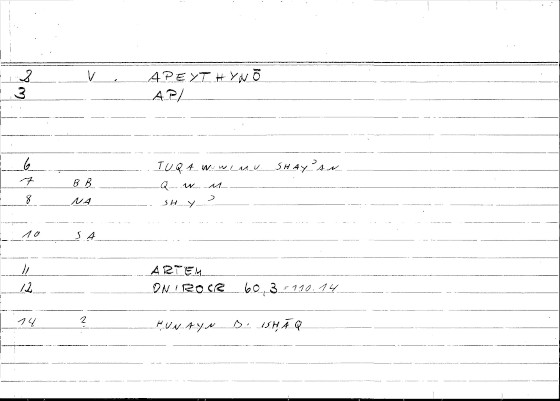 2 V. APEYTHYNŌ
3 API
6 TUQAWWIMU SHAYʾAN
7 BB Q W M
8 NA SH Y ʾ
10 SA
11 ARTEM
12 ONIROCR 60,3 = 110.14
14 ? ḤUNAYN B. ISḤĀQ